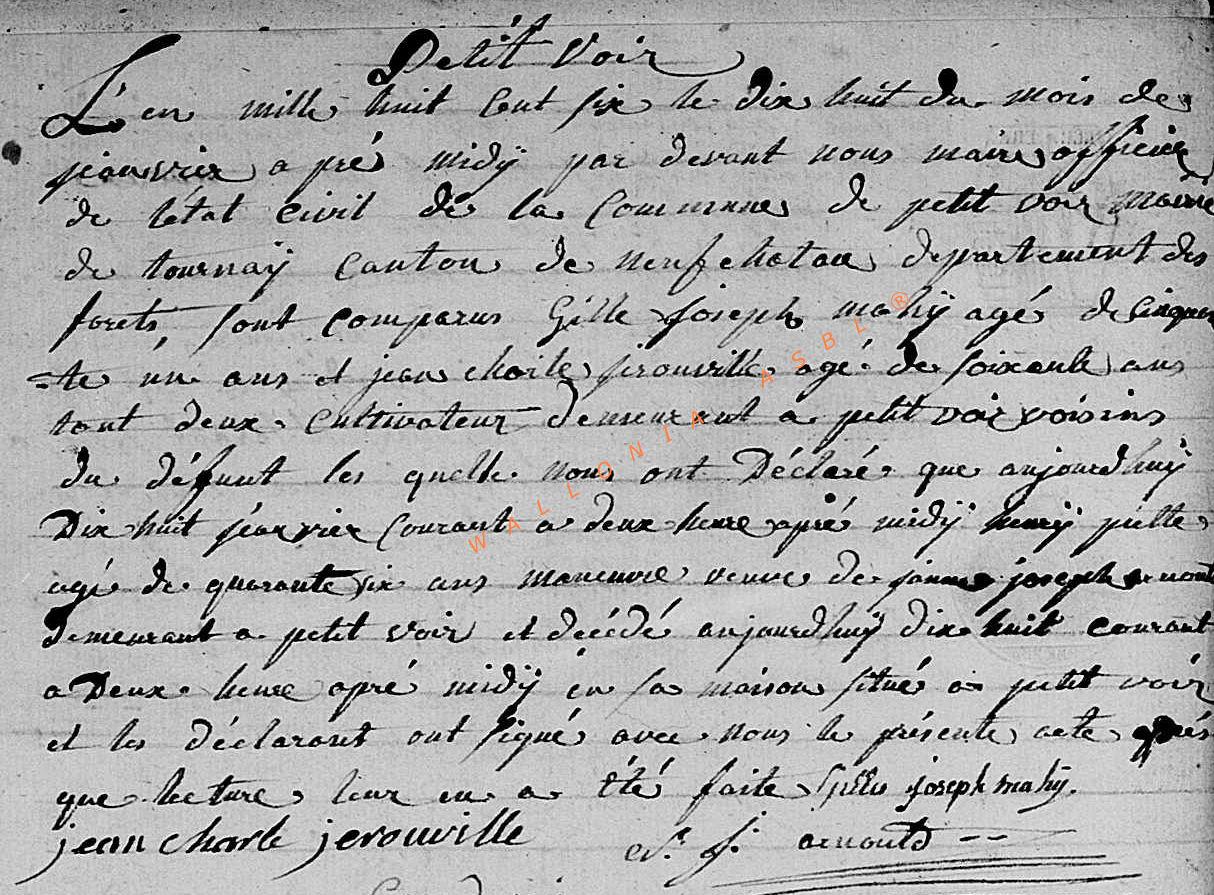 Petit Voir
L'en mille huit Cent six le dix huit du mois de
jeanvrier apré midÿ par devant nous maire officier
de l'état Civil de la Communne de petit voir mairie
de tournaÿ Canton de neufchatau departement des
forets, sont comparus Gille joseph mahÿ agé de Cinquen
=te un ans et jean charle jirouville agé de soixante ans
tout deux Cultivateur demeurant a petit voir voisins
du défunt les quelle nous ont Déclaré que aujourdhuÿ
Dix huit jeanvrier Courant a deux heure apré midÿ henrÿ
agé de quarante six ans maneuvre veuve de joseph arnould
demeurant a petit voir et décédé aujourdhuÿ dix huit courant
a Deux heure apré midÿ en sa maison situé a petit voir
et les déclarant ont signé avec nous le présente acte aprés
que lecture leur en a été faite Gille joseph mahÿ.
jean charle jerouville
j. arnould
WALLONIA ASBL ®